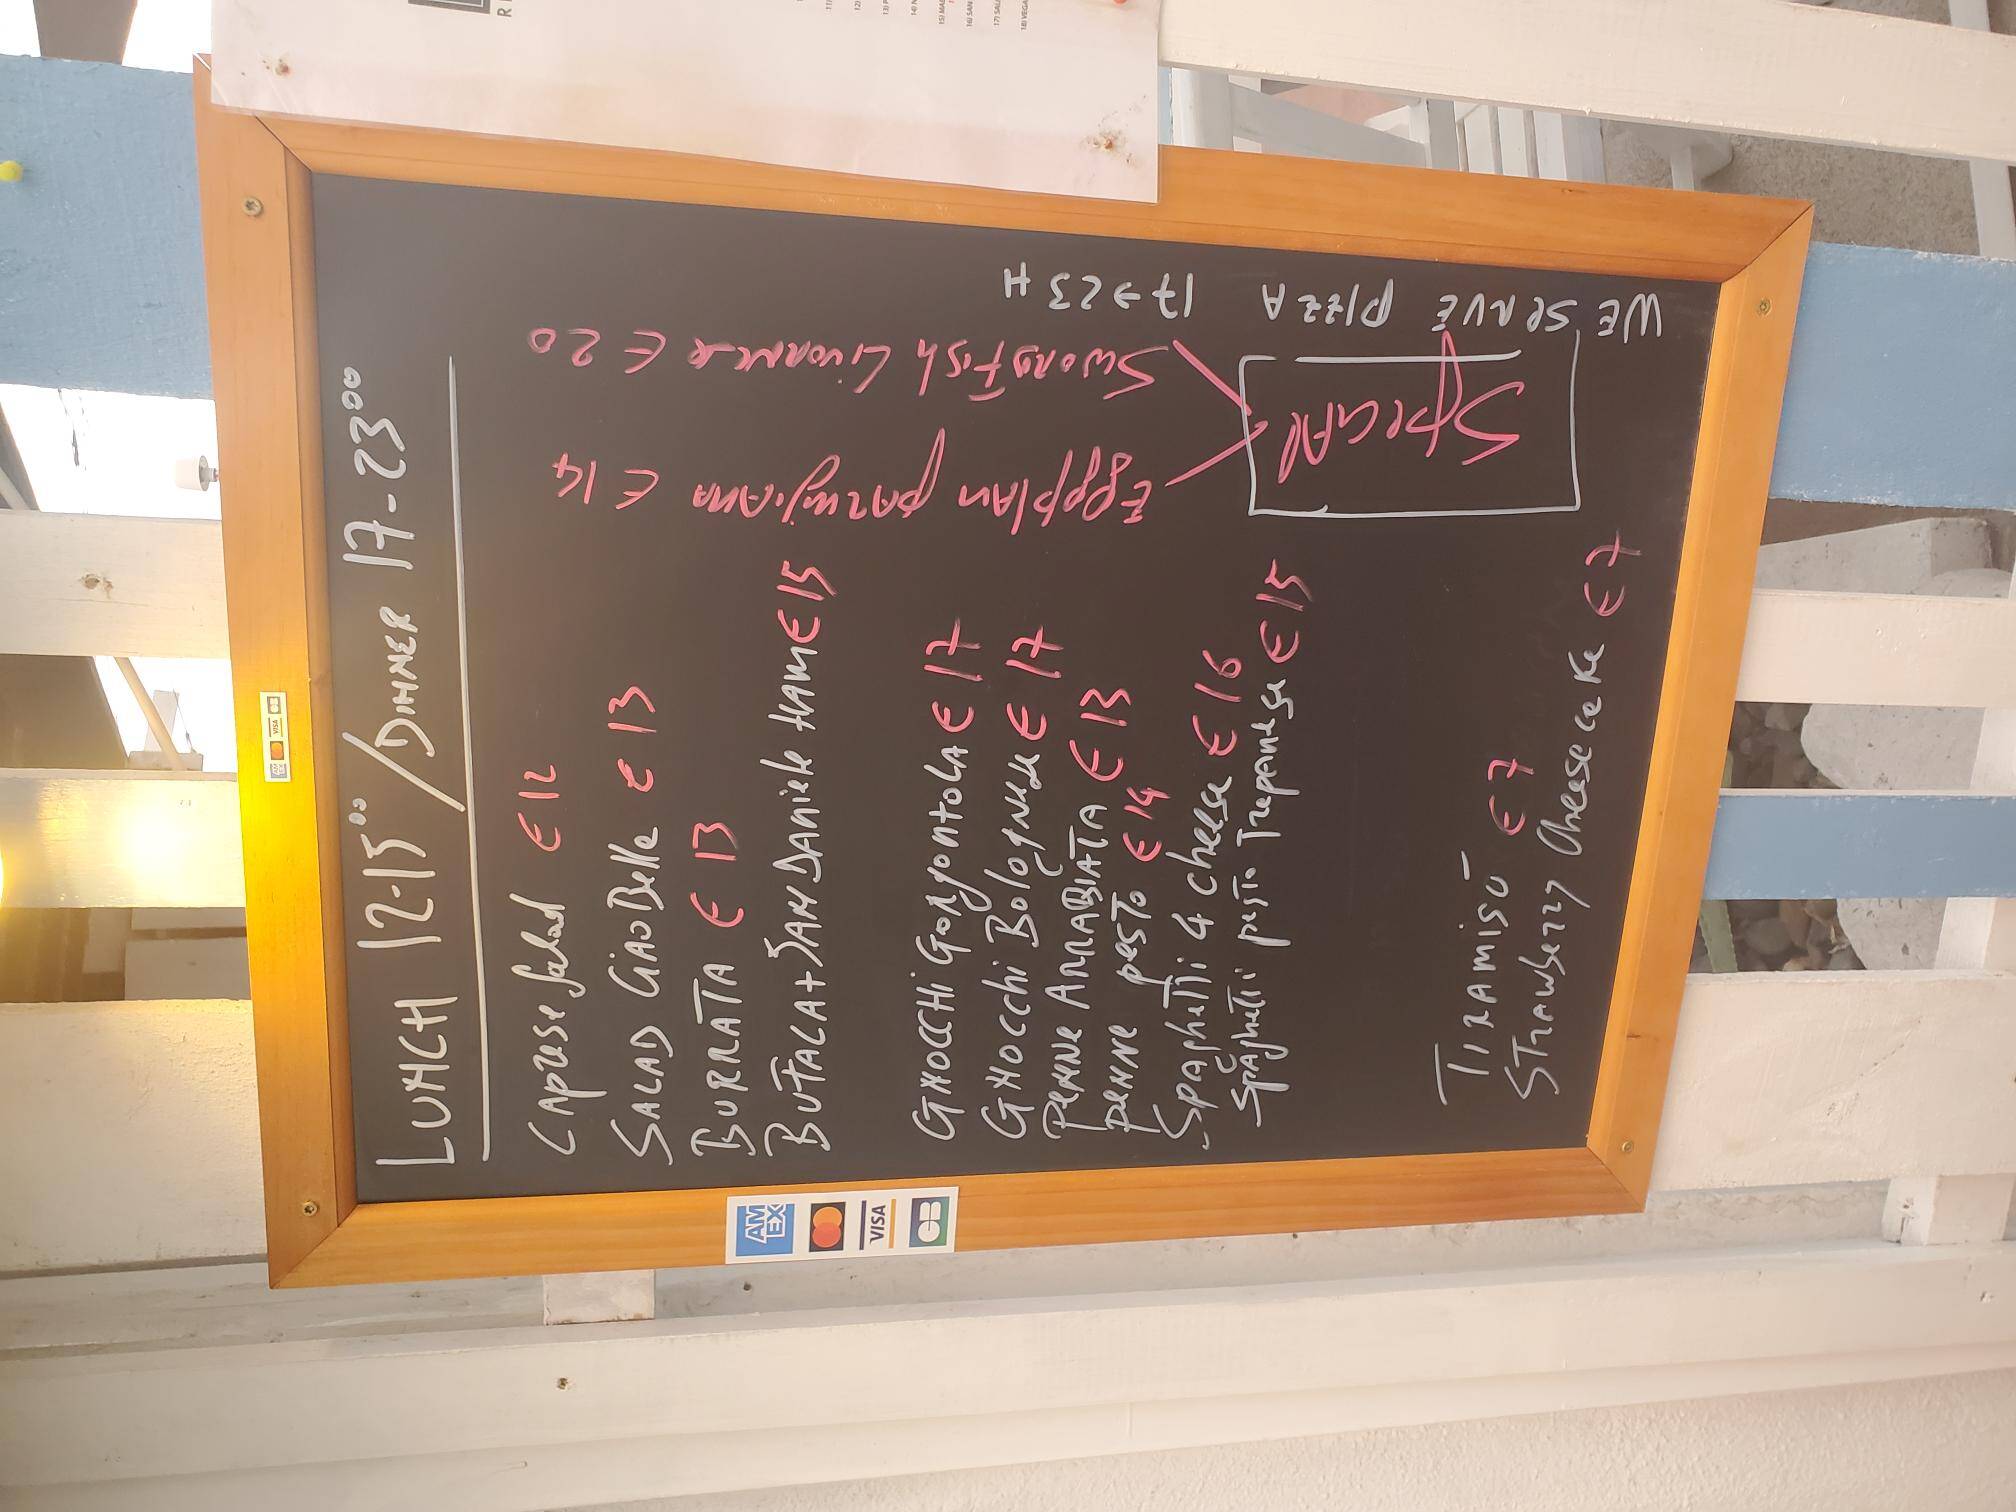 LUNCH 12-15°° / DINNER 17-23°°
CAPRESE SALAD € 12
SALAD CIAO BELLA € 13
BURRATA € 13
BUFALA + SAN DANIELE HAM € 15
GNOCCHI GORGONTOLA € 17
GNOCCHI BOLOGNESE € 17
PENNE ARRABIATA € 13
PENNE PESTO € 14
SPAGHETTI 4 CHEESE € 16
SPAGHETTI PESTO TREPANESE € 15
TIRAMISÚ € 7
STRAWBERRY CHEESECAKE € 7
SPECIAL
EGGPLAN PARMIJIANA € 14
SWORDFISH LIVORNESE € 20
WE SERVE PIZZA 17→23 H
AM
EX
VISA
CB
AM
EX
VISA
CB